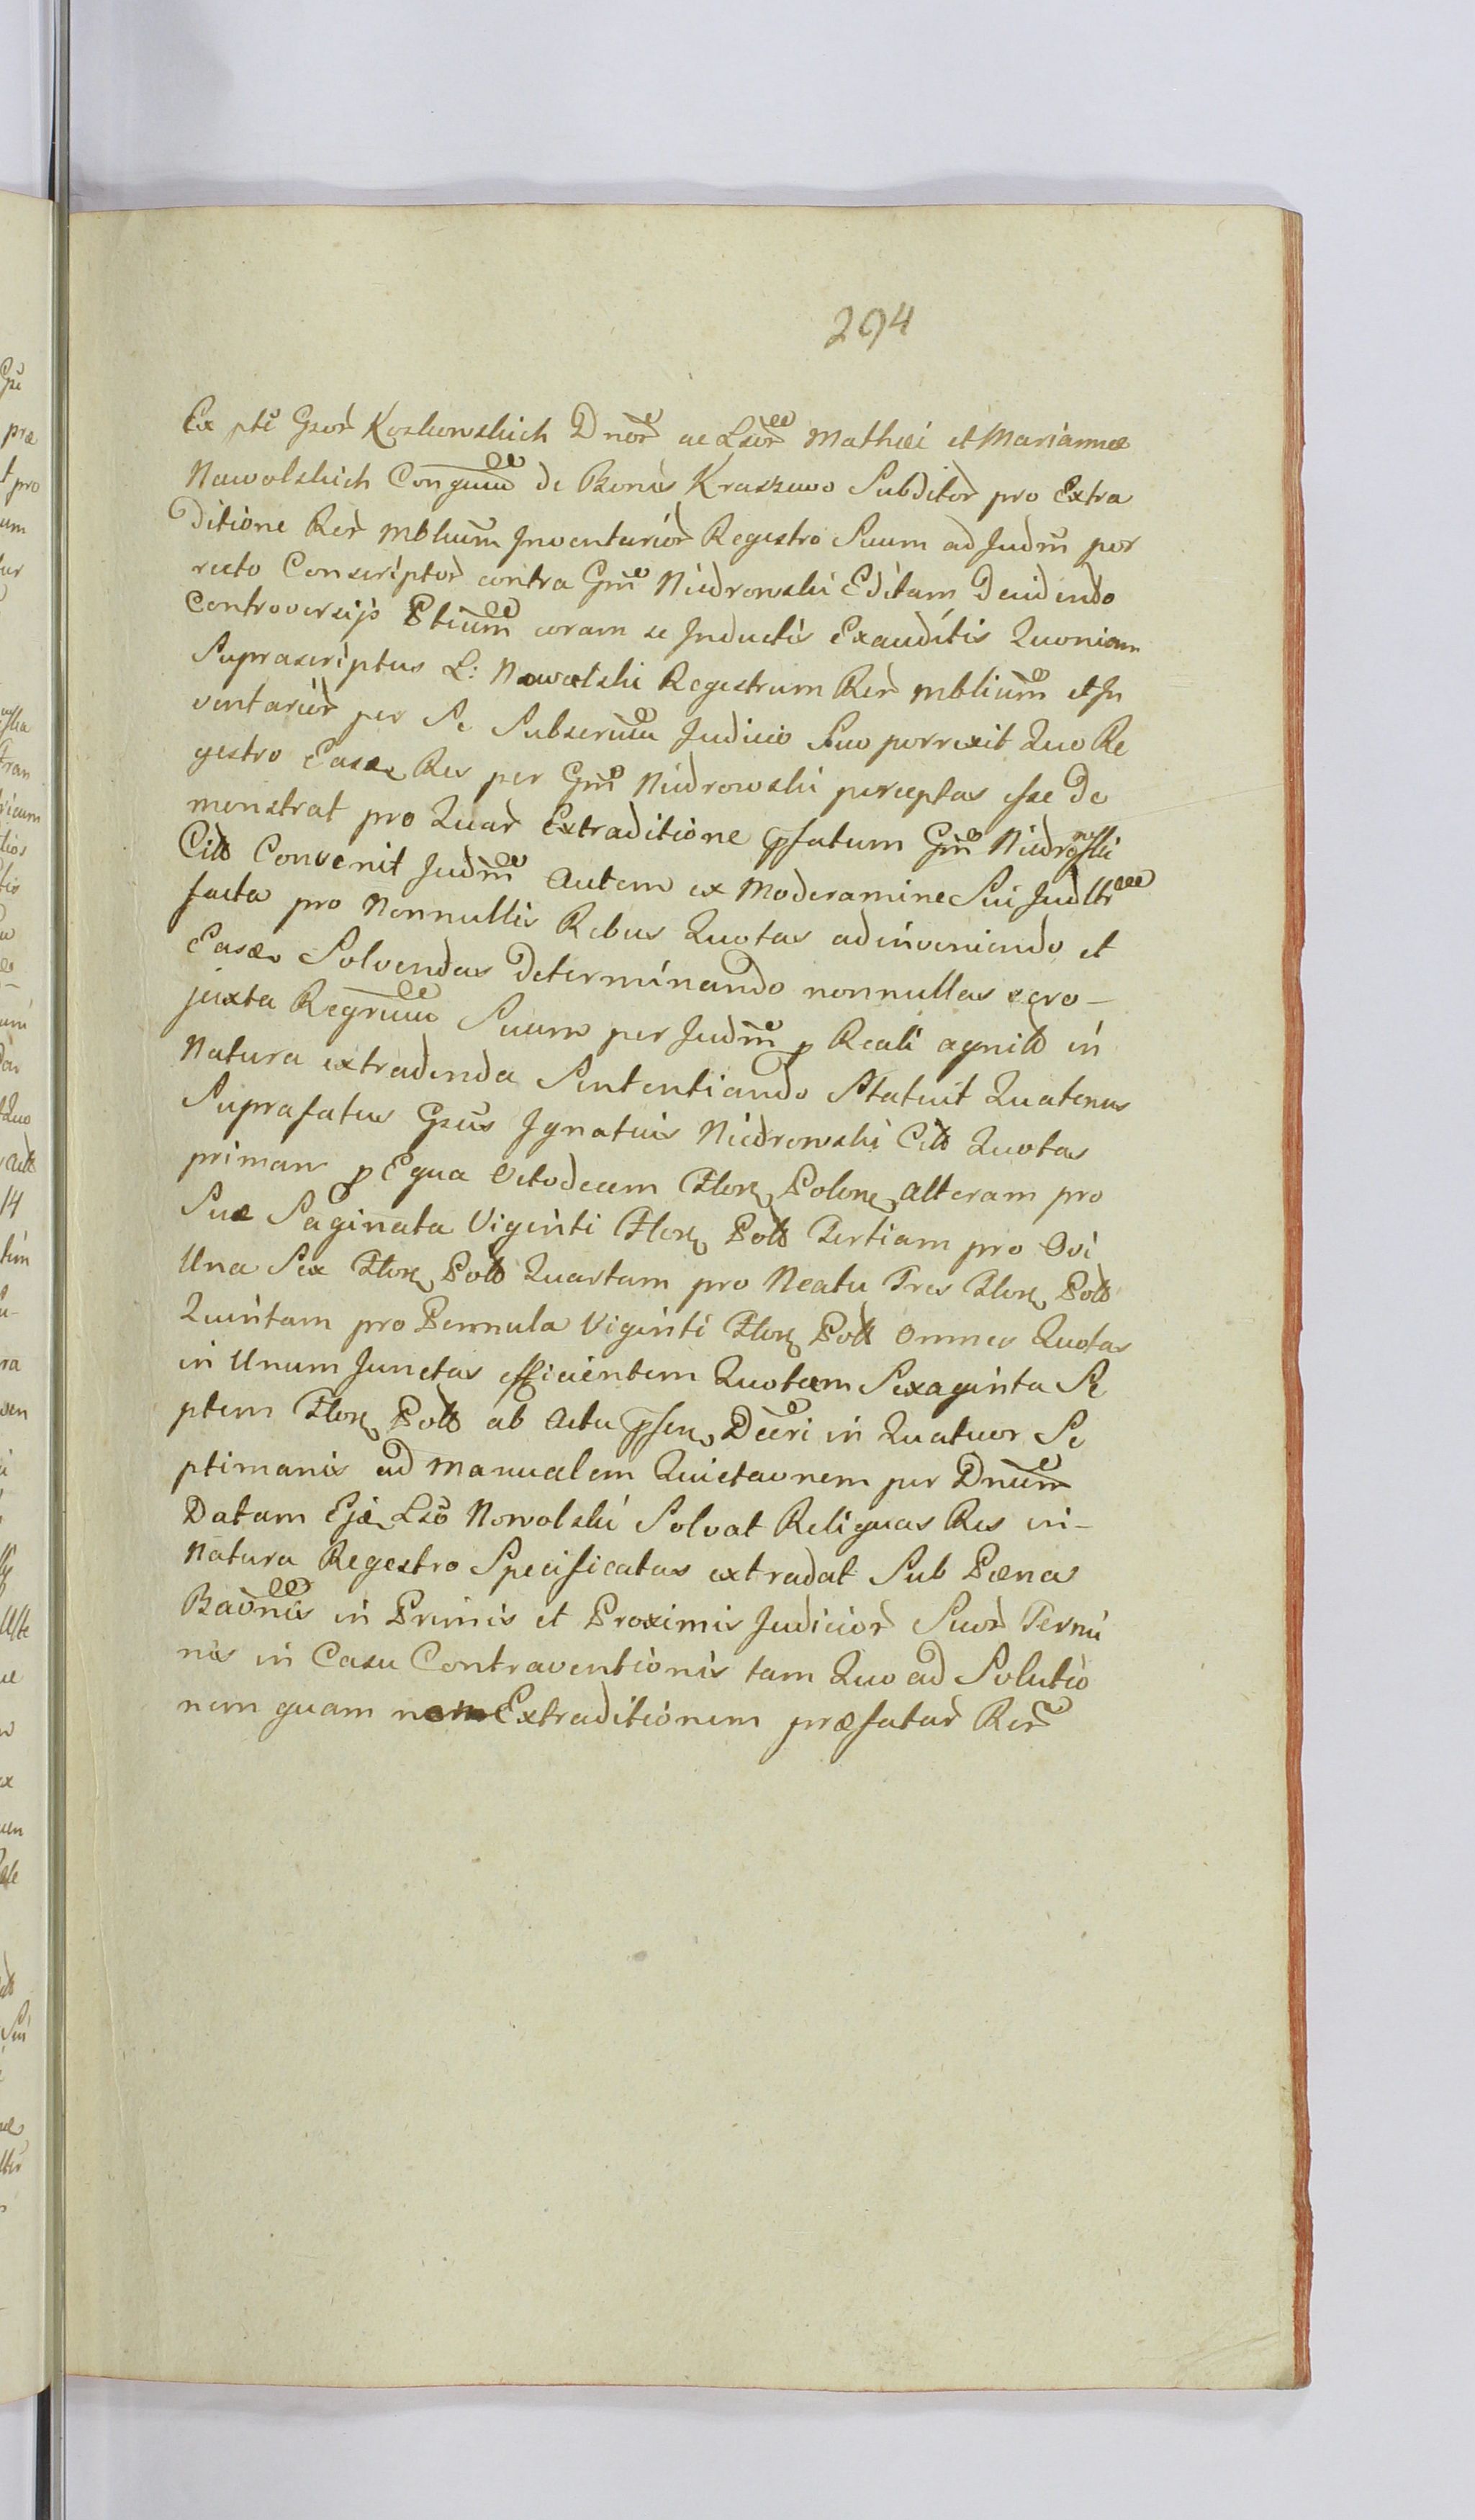 294
Ex pte Gsor Kozłowskich Dnor ac Lsor Mathæi et Mariannæ
Nawolskich Conjgum de Bonis Kraszewo Subditor pro Extra
ditione Rer mblium Inventarior Regestro Suum ad Judm por
recto Conscriptor contra Gm Niedrowski Editam Decidendo
Controversijs Ptium coram se Inductis Exauditis Quoniam
Suprascriptus L: Nowolski Regestrum Rer mblium et In
ventarior per Se Subscrum Judicio Suo porrexit Quo Re
gestro Easq Res per Gm Niedrowski perceptas esse De
monstrat pro Quar Extraditione pfatum Gm Niedrowski
Citt Convenit Judm Autem ex Moderamine Sui Judltr
facta pro Nonnullis Rebus Quotas adinveniendo et
Easq Solvendas Determinando nonnullas vero -
juxta Regrum Suum per Judm p Reali agnitt in
Natura extradenda Sententiando Statuit Quatenus
Suprafatus Gsus Ignatius Niedrowski Citt Quotas
primam p Equa Octodecem Flor Polon Alteram pro
Sue Saginata Viginti Flor Poll Tertiam pro Ovi
Una Sex Flor Poll Quartam pro Meatu Tres Flor Poll
Quintam pro Pennula Viginti Flor Poll Omnes Quotas
in Unum Junctas efficientem Quotam Sexaginta Se
ptem Flor Poll ab Actu pſen Decri in Quatuor Se
ptimanis ad Manualem Quietaonem per Dnum
Datam Eję Lso Nowolski Solvat Reliquas Res in -
Natura Regestro Specificatas extradat Sub Pæna
Baonis in Primis et Proximis Judicior Suor Termi
nis in Casu Contraventionis tam Quo ad Solutio
nem quam Extraditionem præfatar Rer